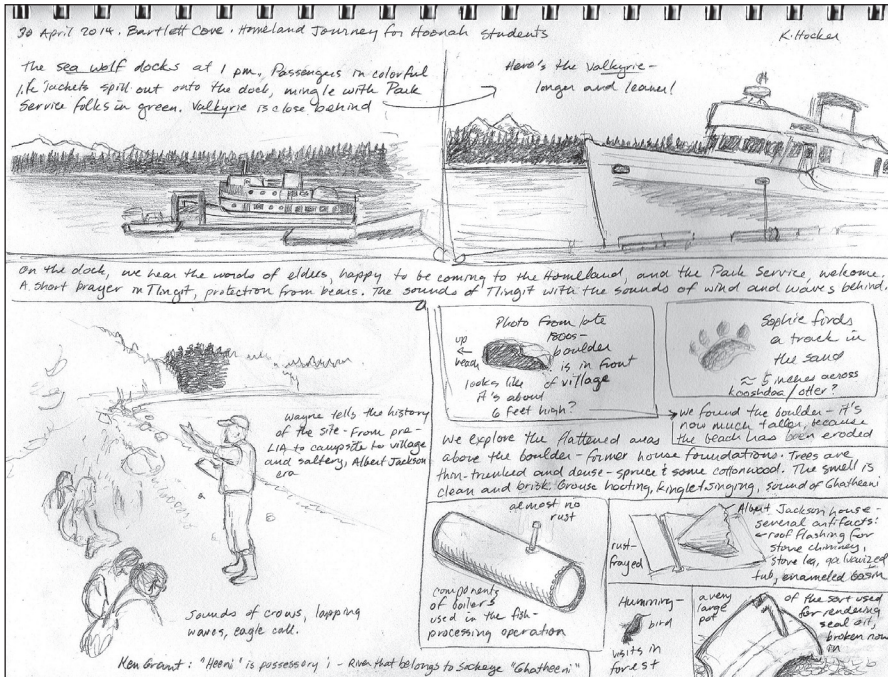 30 April 2014. Bartlett Cove. Homeland Journey for Hoonah Students
K. Hocker
The sea wolf docks at 1 pm. Passengers in colorful
life jackets spill out onto the dock, mingle with Park
Service folks in green. Valkyrie is close behind
Here's the Valkyrie-
longer and leaner!
On the dock, we hear the words of elders, happy to be coming to the Homeland, and the Park Service, welcome.
A short prayer in Tlingit, protection from bears. The sounds of Tlingit with the sounds of wind and waves behind.
Wayne tells the history
of the site - from pre-
LIA to campsite to village
and saltery, Albert Jackson
era
Sounds of crows, lapping
waves, eagle call.
Photo from late
1800s-
boulder
is in front
of village
up
beach
looks like
it's about
6 feet high?
Sophie finds
a track in
the sand
≈ 5 inches across
Kooshdaa / otter?
we found the boulder - it's
now much taller, because
the beach has been eroded
We explore the flattened areas
above the boulder - former house foundations. Trees are
thin-trunked and dense - spruce & some cottonwood. The smell is
clean and brisk. Grouse hooting, kinglet singing, sound of Ghatheeni
almost no
rust
components
of boilers
used in the fish-
processing operation
rust-
frayed
Albert Jackson house -
several artifacts:
roof flashing for
stove chimney,
stove leg, galvanized
tub, enameled basin
Humming-
bird
visits in
forest
a very
large
pot
of the sort used
for rendering
seal oil,
broken now
in
Ken Grant: "Heeni" is possessory i - River that belongs to sockeye "Ghatheeni"